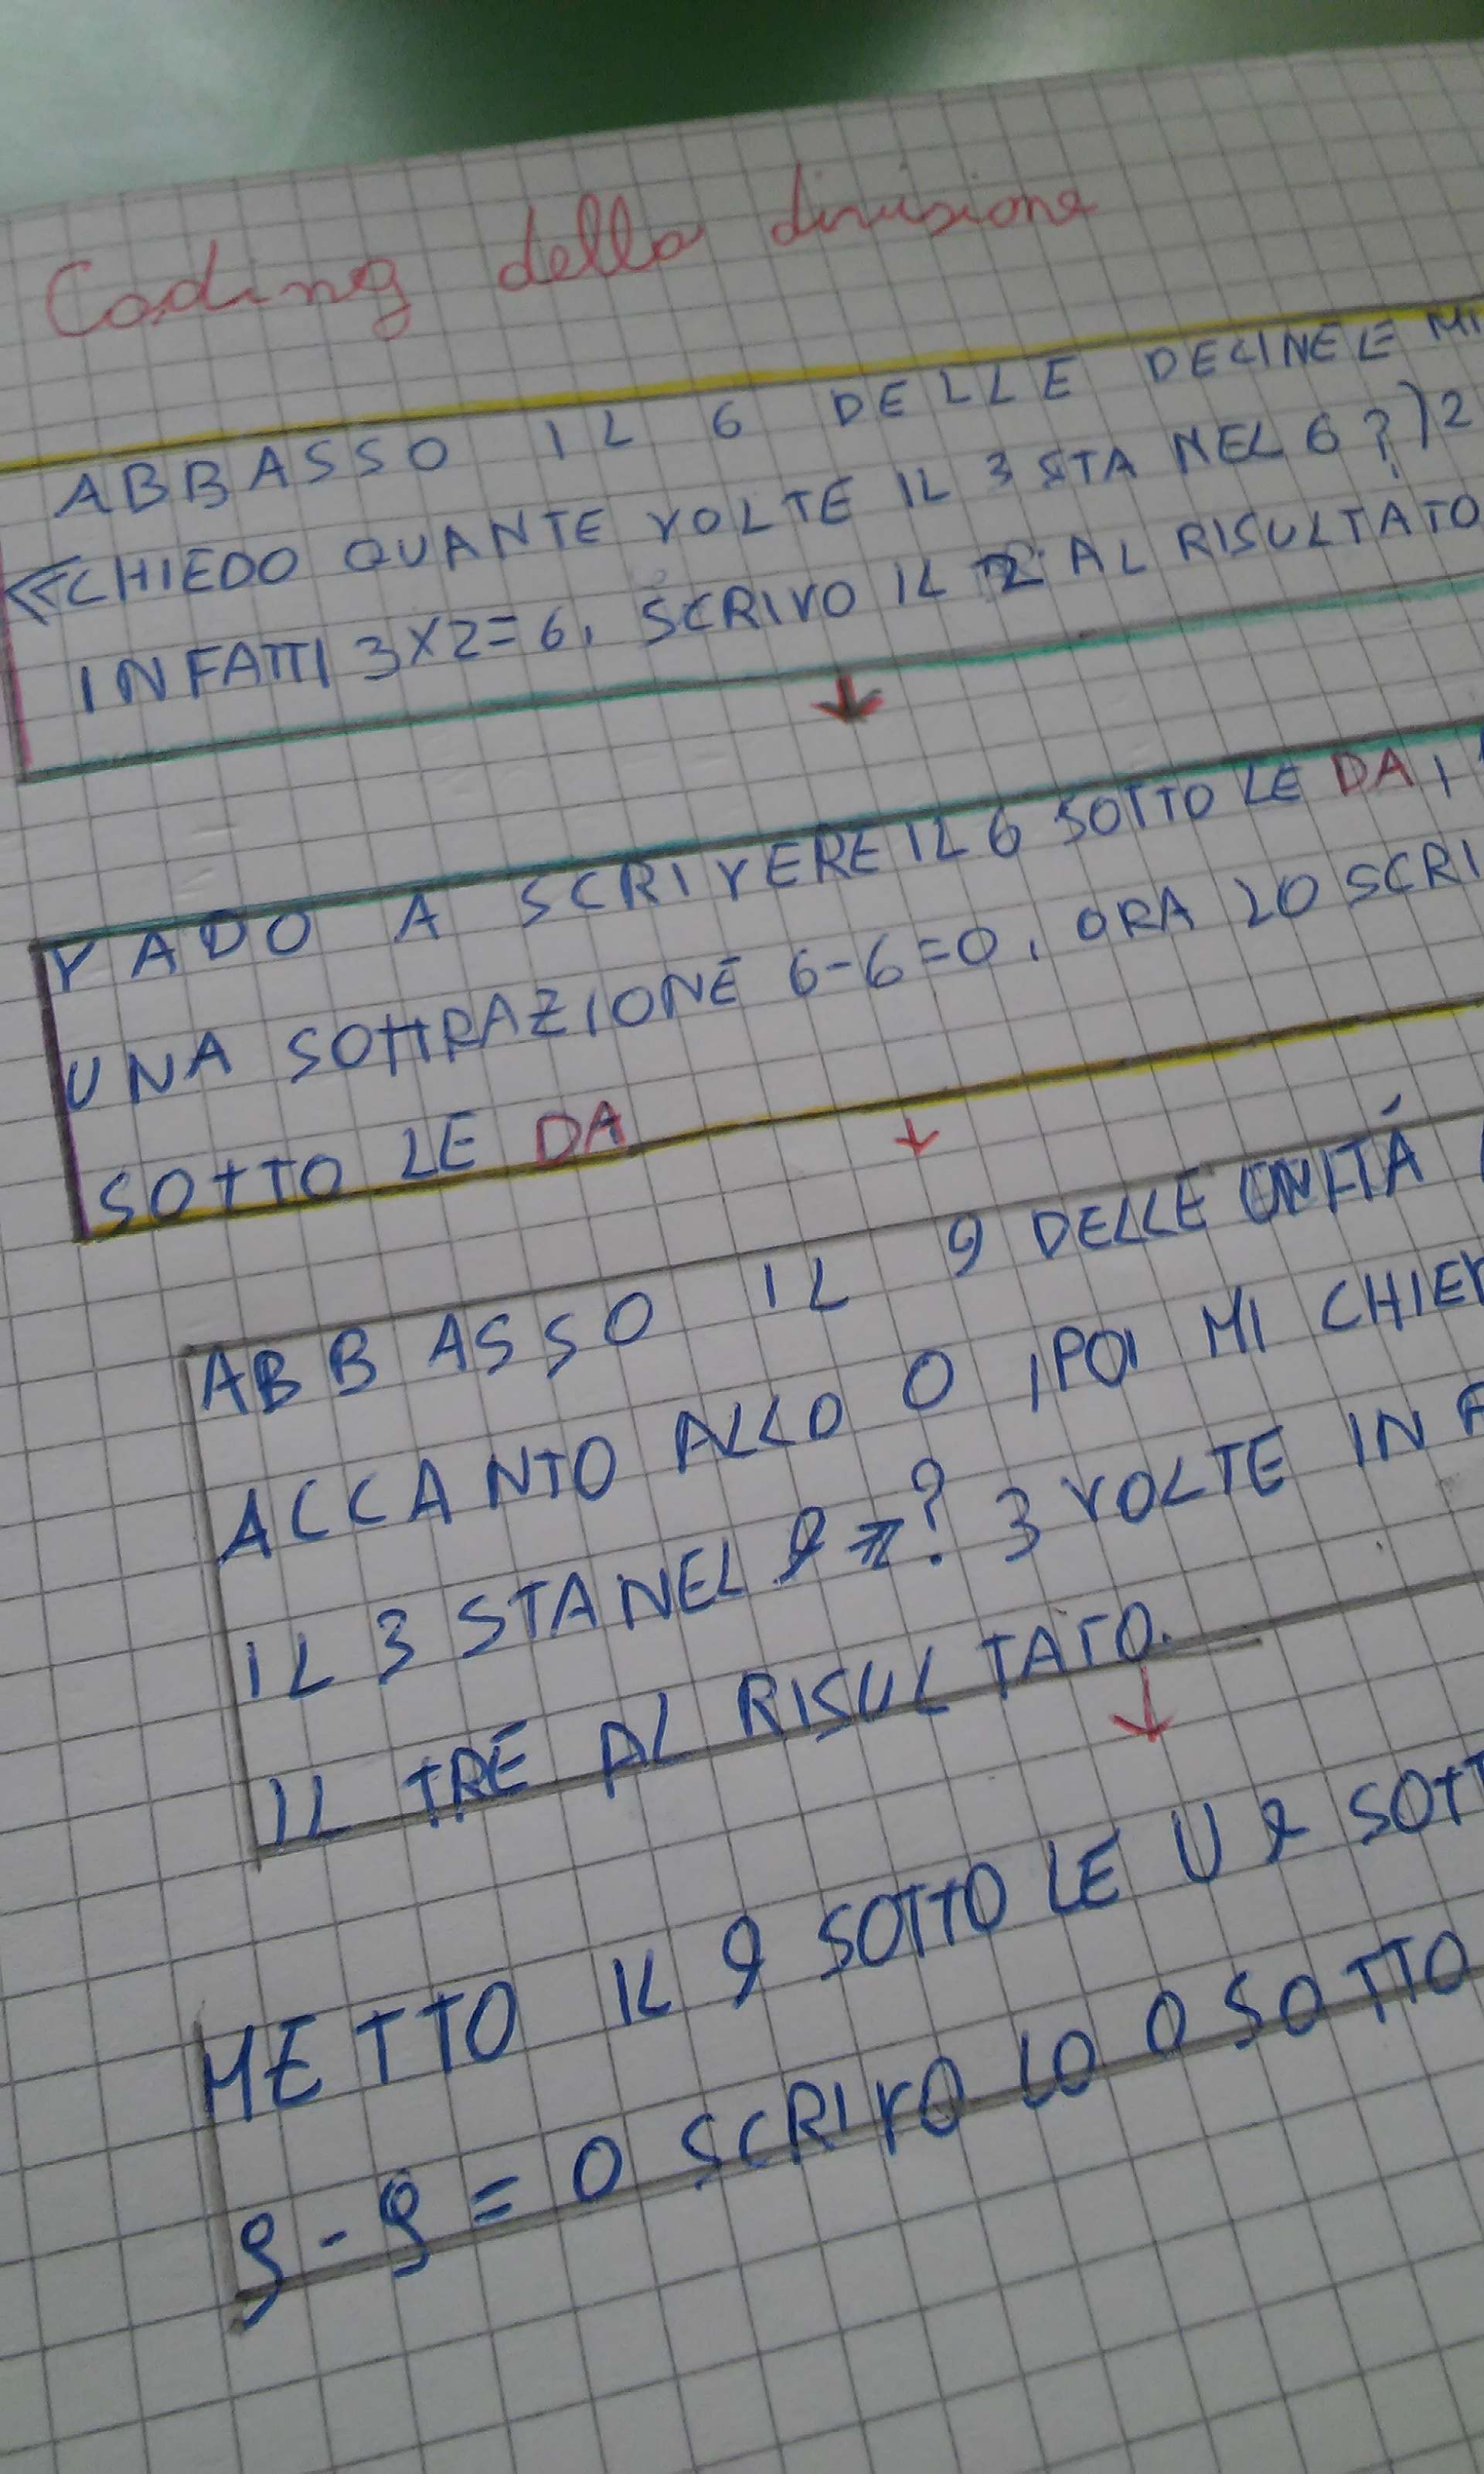 Coding della divisione
ABBASSO IL 6 DELLE DECINE E MI
CHIEDO QUANTE VOLTE IL 3 STA NEL 6?) 2
INFATTI 3X2=6, SCRIVO IL 2 AL RISULTATO
VADO A SCRIVERE IL 6 SOTTO LE DA,
UNA SOTTRAZIONE 6-6=0, ORA LO SCRI
SOTTO LE DA
ABBASSO IL 9 DELLE UNITÁ
ACCANTO ALLO 0, POI MI CHIE
IL 3 STA NEL 9? 3 VOLTE IN F
IL TRE AL RISULTATO.
METTO IL 9 SOTTO LE U E SOTT
9-9=0 SCRIVO LO 0 SOTTO